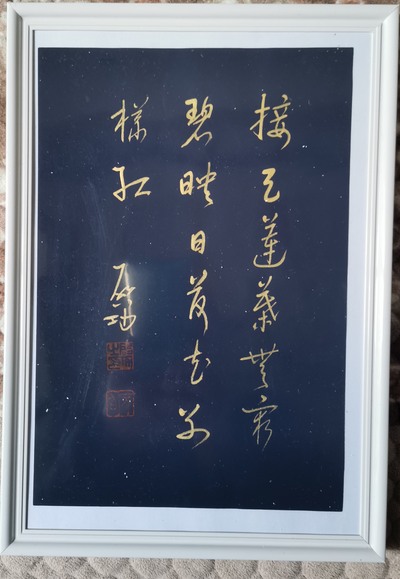 接天蓮葉無窮
碧映日荷花別
樣紅
启功